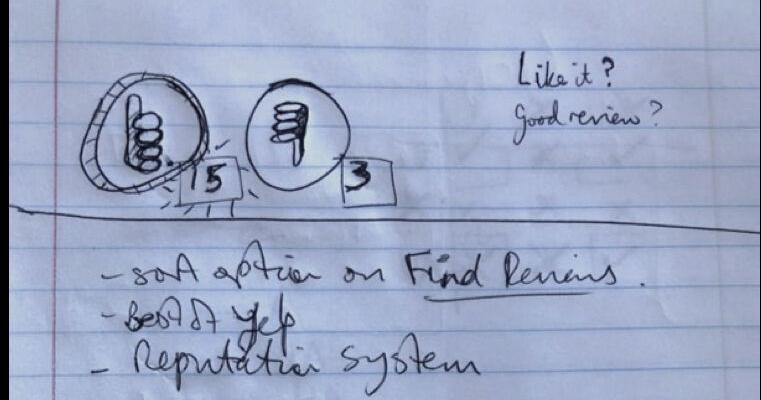 Like it?
Good review?
15
3
- sort option on Find Reviews.
- Best of Yelp
- Reputation System